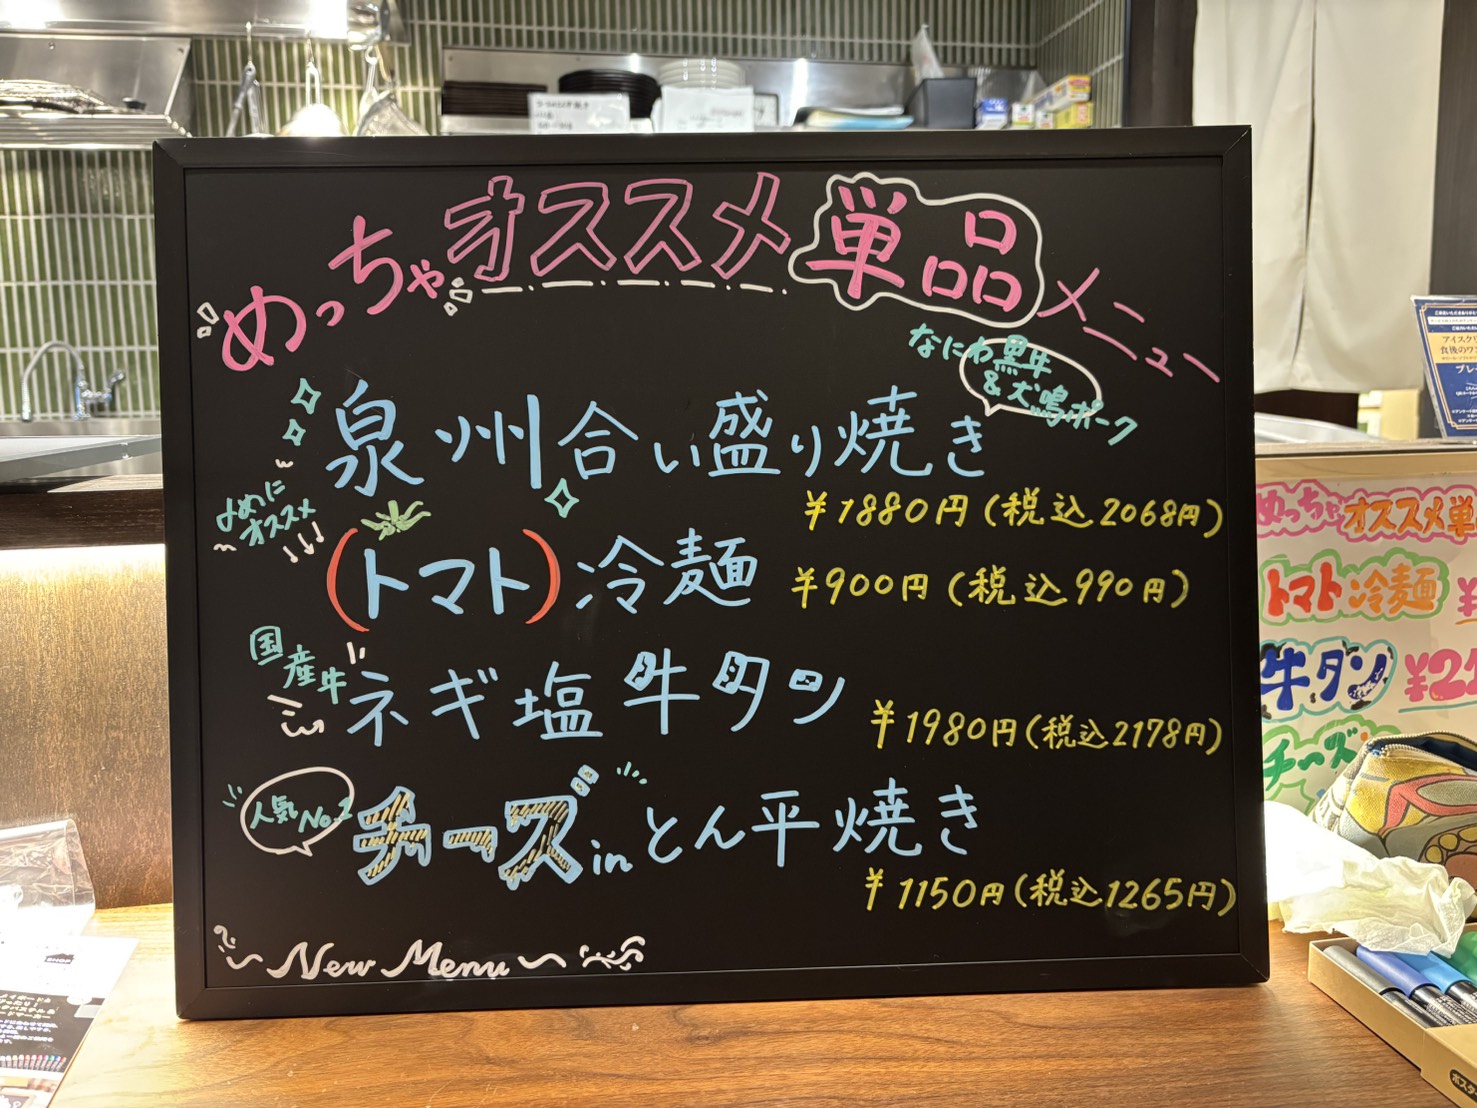 めっちゃオススメ単品メニュー
なにわ黒牛
&犬鳴ポーク
泉州合い盛り焼き
¥1880円(税込2068円)
オススメ
(トマト)冷麺
¥900円(税込990円)
国産牛
ネギ塩牛タン
¥1980円(税込2178円)
人気No.1
チーズinとん平焼き
¥1150円(税込1265円)
New Menu
めっちゃオススメ単
トマト冷麺
牛タン
チーズ
アイスク
食後のワン
プレ